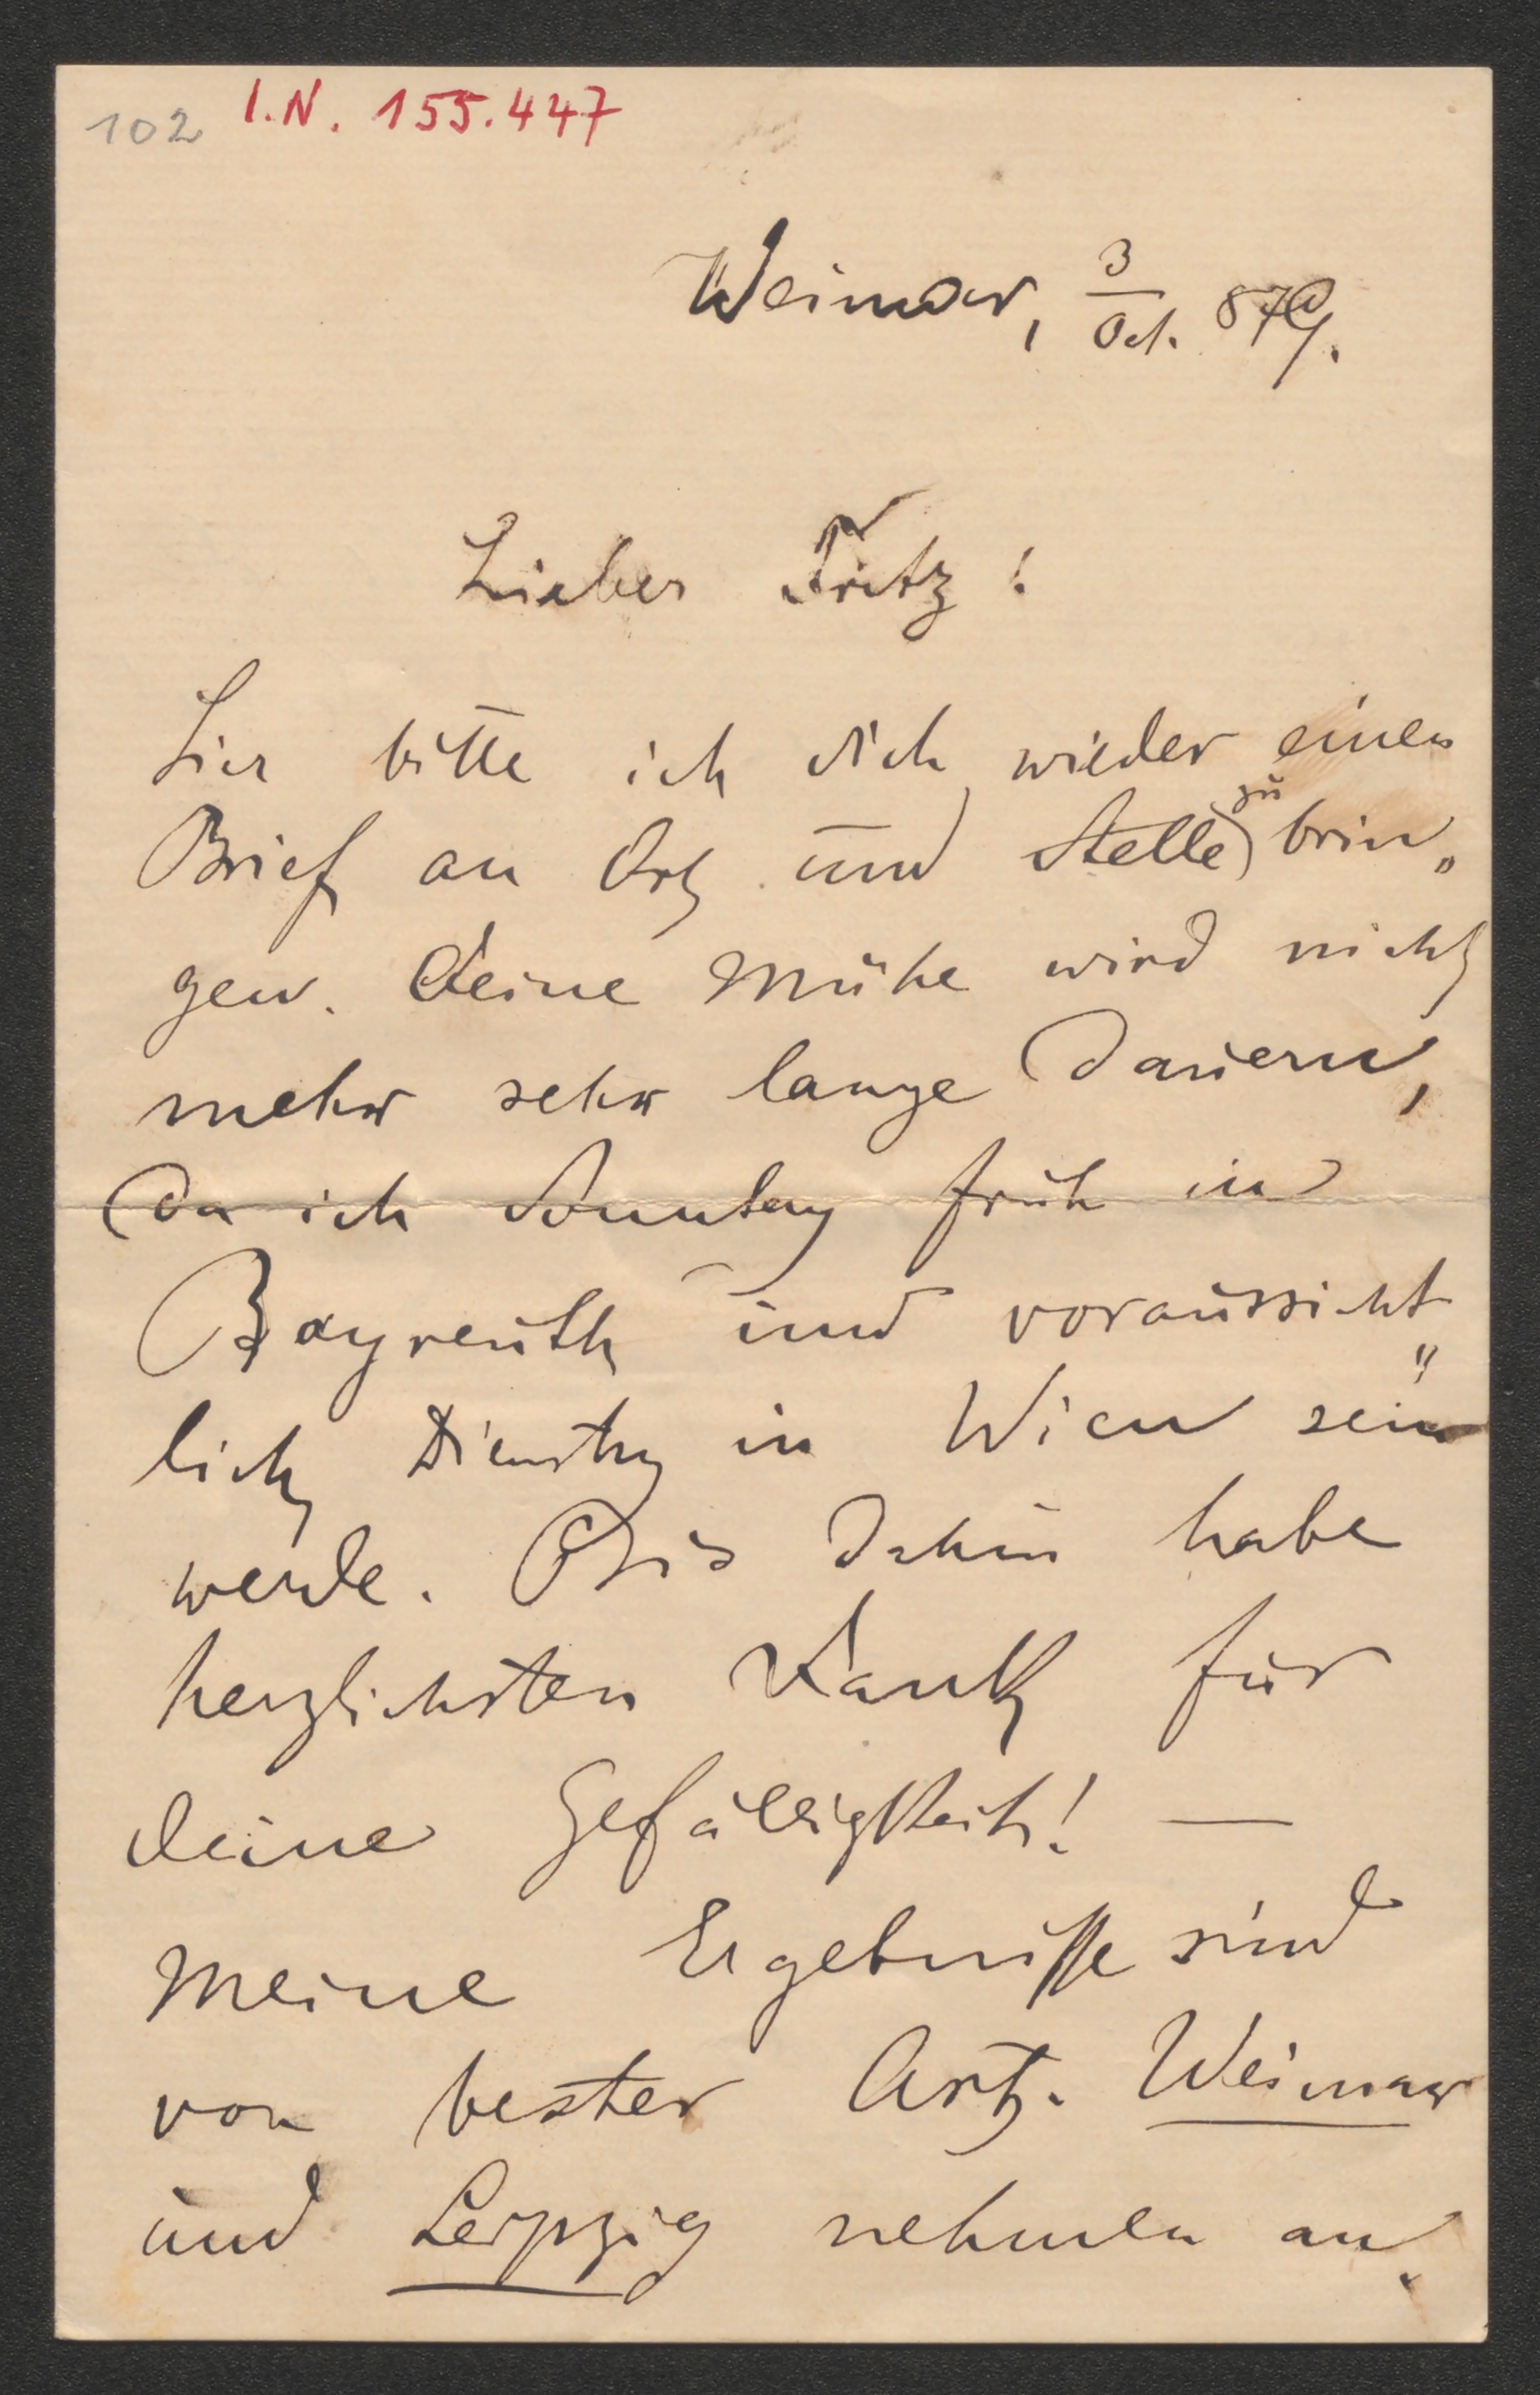 102 I.N. 155.447
Weimar, 3/Oct. 879.
Lieber Fritz!
Hier bitte ich dich wieder einen
Brief an Ort und Stelle zu brin„
gen. Deine Mühe wird nicht
mehr sehr lange dauern,
da ich Sonntag früh in
Bayreuth und voraussicht„
lich Dienstag in Wien sein
werde. Bis dahin habe
herzlichsten Dank für
deine Gefälligkeit! —
Meine Ergebnisse sind
von bester Art. Weimar
und Leipzig nehmen an.